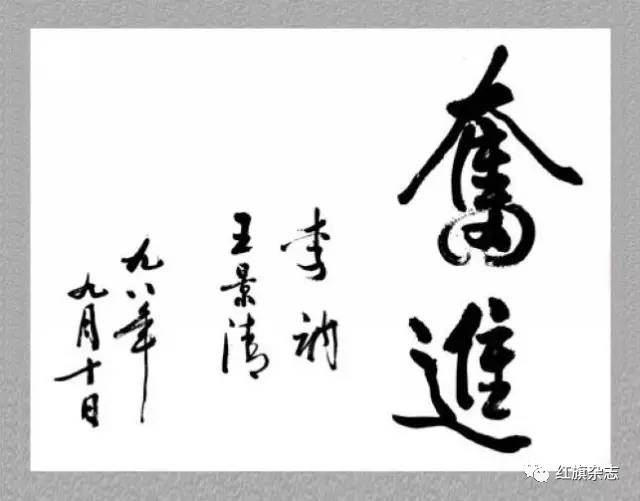 奮進
李訥
王景清
九八年
九月十日
红旗杂志